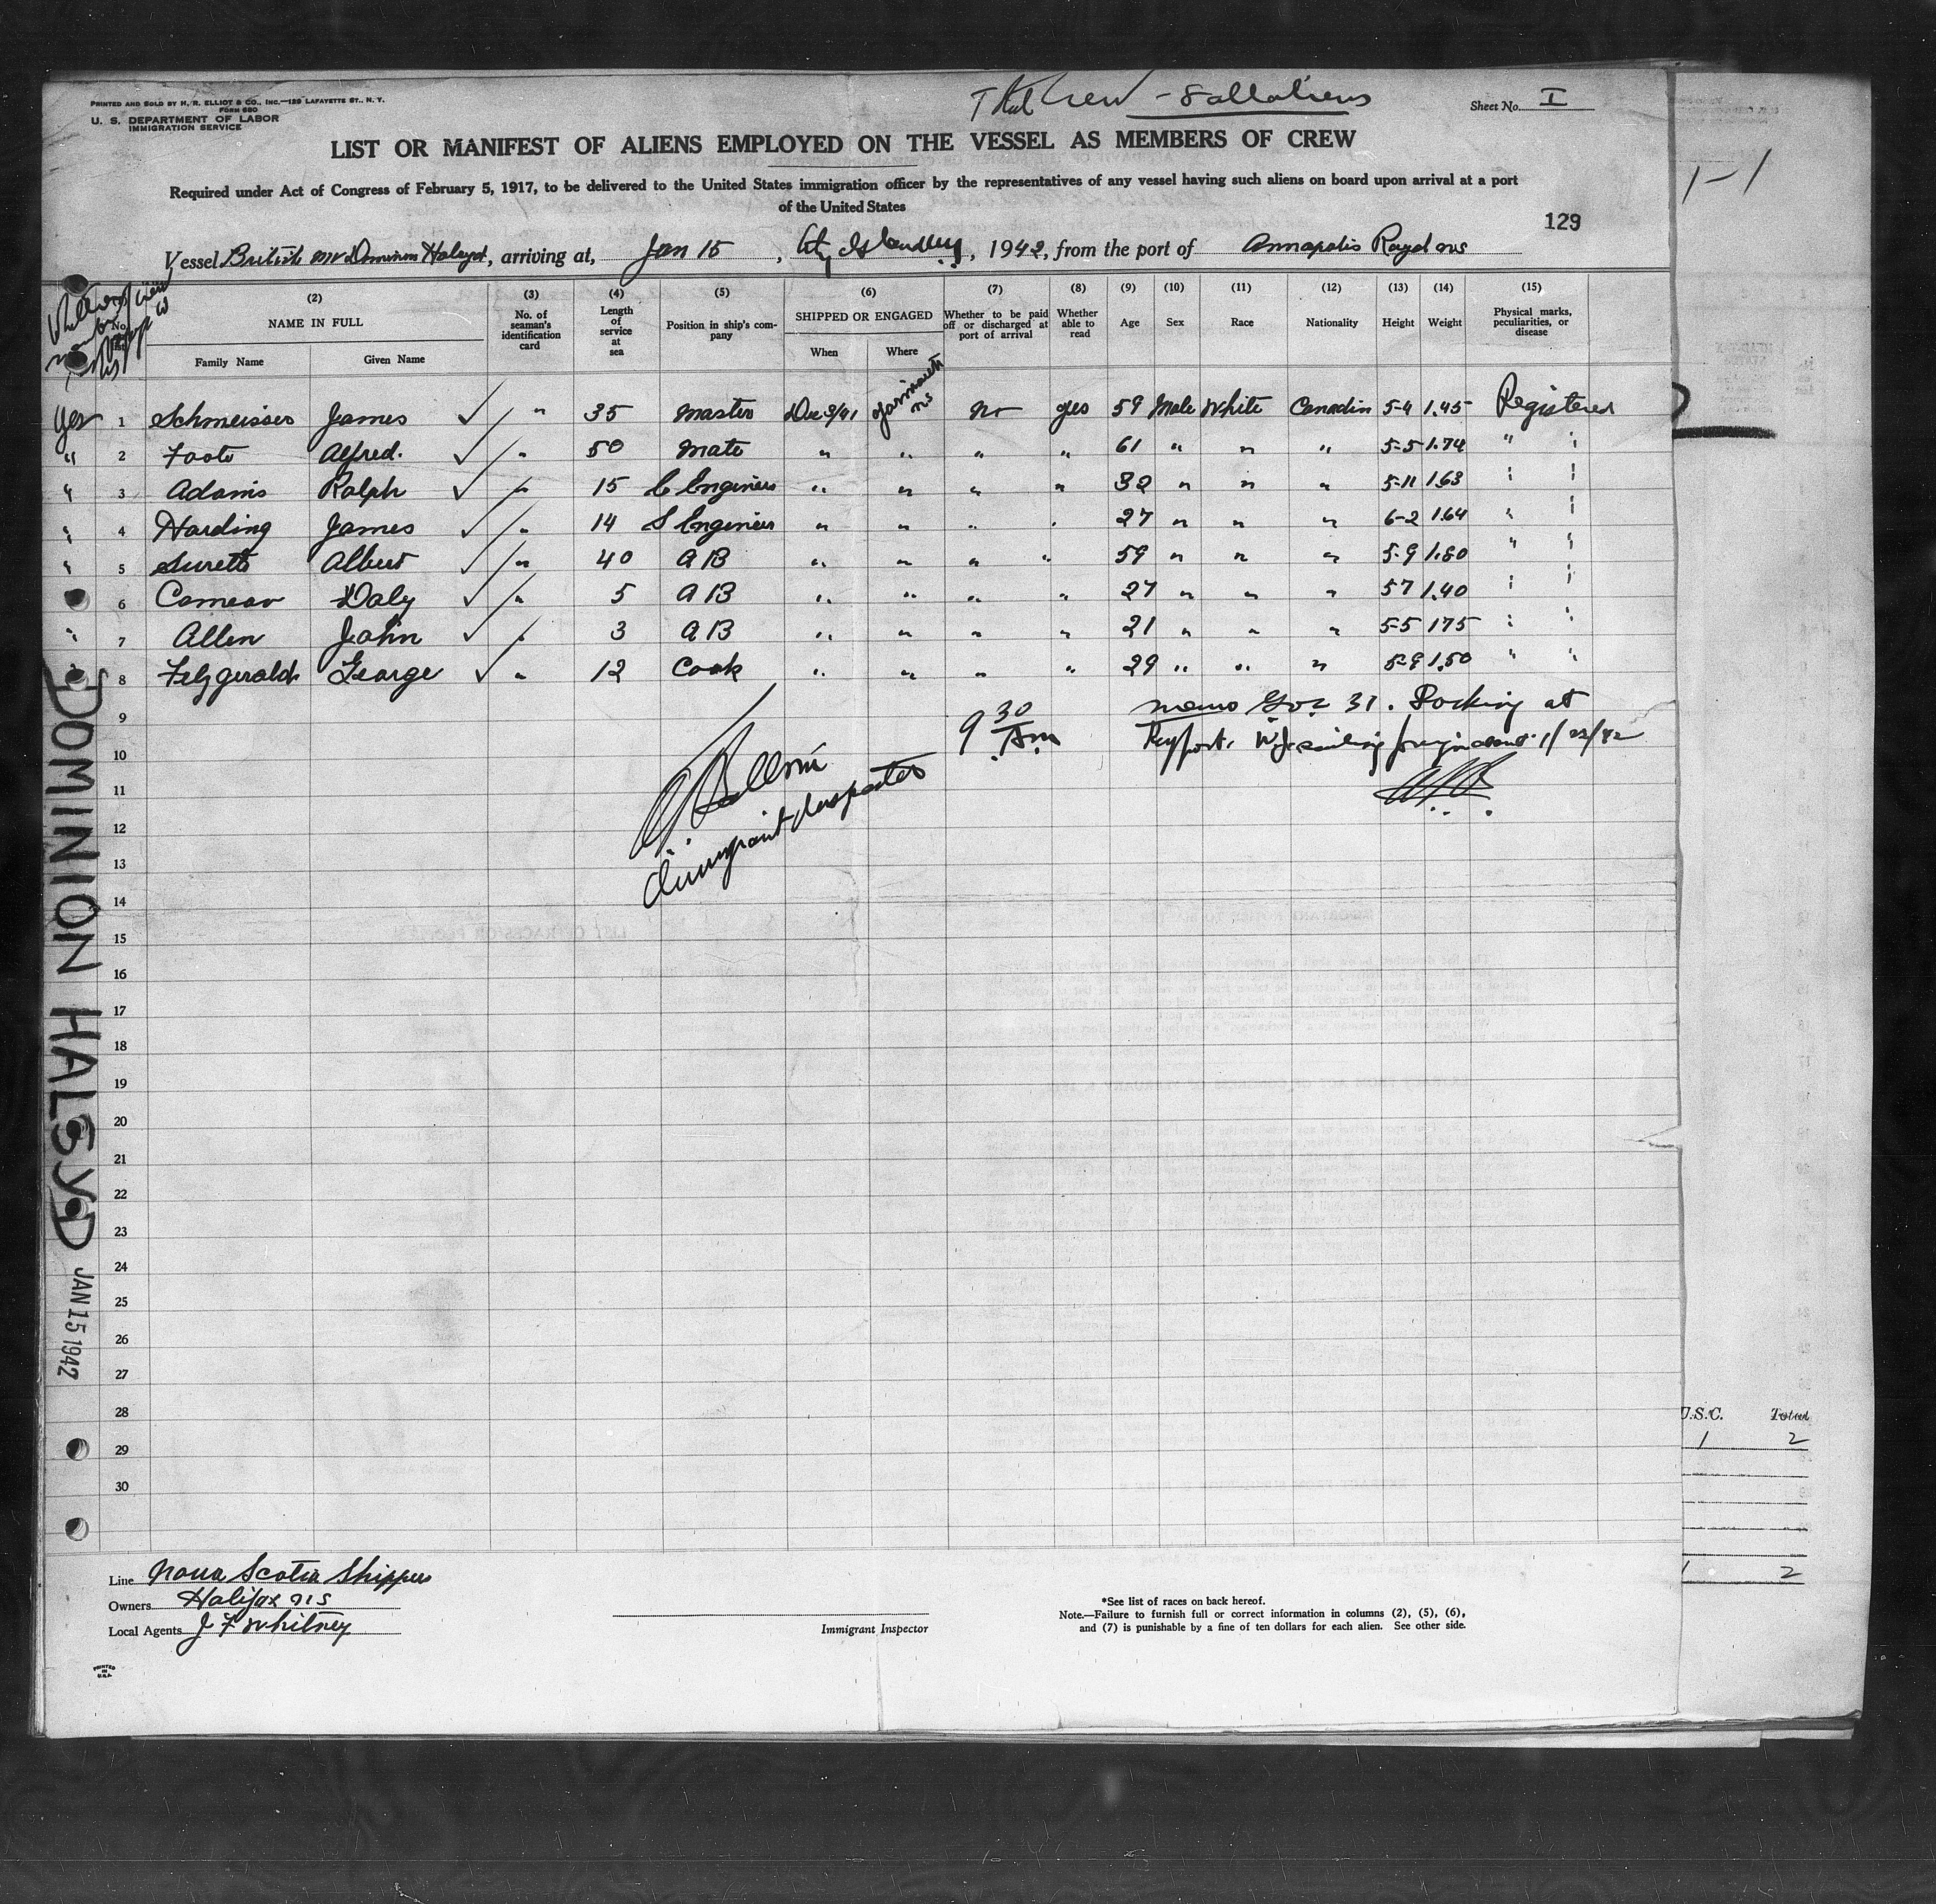 PRINTED AND SOLD BY H. R. ELLIOT & CO., INC.—129 LAFAYETTE ST., N. Y.
FORM 680
U. S. DEPARTMENT OF LABOR
IMMIGRATION SERVICE
Crew - 8 all aliens
Sheet No. I
LIST OR MANIFEST OF ALIENS EMPLOYED ON THE VESSEL AS MEMBERS OF CREW
Required under Act of Congress of February 5, 1917, to be delivered to the United States immigration officer by the representatives of any vessel having such aliens on board upon arrival at a port
of the United States
129
1-1
Vessel British MV Dominion Halsyd, arriving at, Jan 15, City Island NY, 1942, from the port of Annapolis Royal NS
(2) (3) (4) (5) (6) (7) (8) (9) (10) (11) (12) (13) (14) (15)
NAME IN FULL
Family Name Given Name
No. of seaman's identification card
Length of service at sea
Position in ship's company
SHIPPED OR ENGAGED
When Where
Whether to be paid off or discharged at port of arrival
Whether able to read
Age Sex Race Nationality Height Weight
Physical marks, peculiarities, or disease
Yes 1 Schmeisser James ✓ " 35 Master Dec 3/41 Yarmouth NS No yes 59 Male White Canadin 5-4 1.45 Registered
" 2 Foote Alfred. ✓ " 50 Mate " " " " 61 " " " 5-5 1.74 " "
" 3 Adams Ralph ✓ " 15 C Engineer " " " " 32 " " " 5-11 1.63 " "
" 4 Harding James ✓ " 14 S Engineer " " " " 27 " " " 6-2 1.64 " "
" 5 Surette Albert ✓ " 40 AB " " " " 59 " " " 5-9 1.80 " "
" 6 Comeau Daly ✓ " 5 AB " " " " 27 " " " 5 7 1.40 " "
" 7 Allen John ✓ " 3 AB " " " " 21 " " " 5-5 175 " "
" 8 Fitzgerald George ✓ " 12 Cook " " " " 29 " " " 5-9 1.50 " "
9 9 30 Am memo 31. Docking at
10 1/22/42
11
12 Immigrant Inspector
13
14
15
16
17
18
19
20
21
22
23
24
25
26
27
28
29
30
DOMINION HALSYD JAN 15 1942
U.S.C. Total
1 2
1 2
Line Nova Scotia Shippers
Owners Halifax NS
Local Agents J F Whitney
Immigrant Inspector
*See list of races on back hereof.
Note.—Failure to furnish full or correct information in columns (2), (5), (6),
and (7) is punishable by a fine of ten dollars for each alien. See other side.
PRINTED
IN
U.S.A.